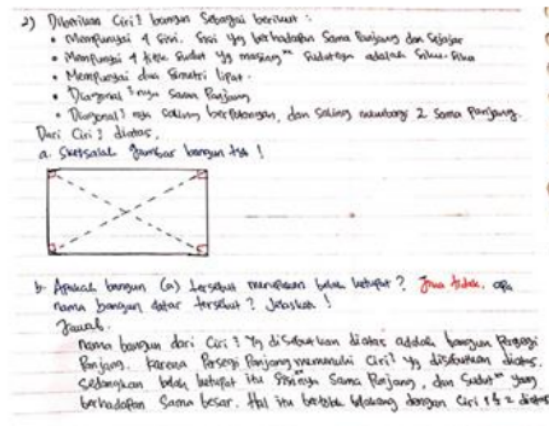 2) Diberikan Ciri2 bangun Sebagai berikut :
• Mempunyai 4 sisi. Sisi yg berhadapan Sama Panjang dan Sejajar
• Mempunyai 4 titik Sudut yg masing" Sudutnya adalah Siku-Siku
• Mempunyai dua Simetri lipat.
• Diagonal2 nya Sama Panjang
• Diagonal2 nya saling berpotongan, dan saling membagi 2 sama panjang.
Dari Ciri2 diatas,
a. Sketsalah gambar bangun tsb !
b. Apakah bangun (a) tersebut merupakan belah ketupat ? Jika tidak, apa
nama bangun datar tersebut ? Jelaskan !
Jawab.
nama bangun dari Ciri2 yg disebutkan diatas adalah bangun Persegi
Panjang. karena Persegi Panjang memenuhi Ciri2 yg disebutkan diatas.
sedangkan belah ketupat itu Sisinya Sama Panjang, dan Sudut" yang
berhadapan Sama besar. Hal itu bertolak belakang dengan Ciri 1 & 2 diatas